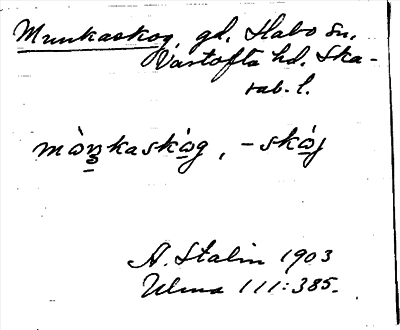 Munkaskog, gd, Habo sn,
Vartofta hd. Ska-
rab. l.
mòŋkaskóg, -skój
A. Stalin 1903
Ulma 111:385.